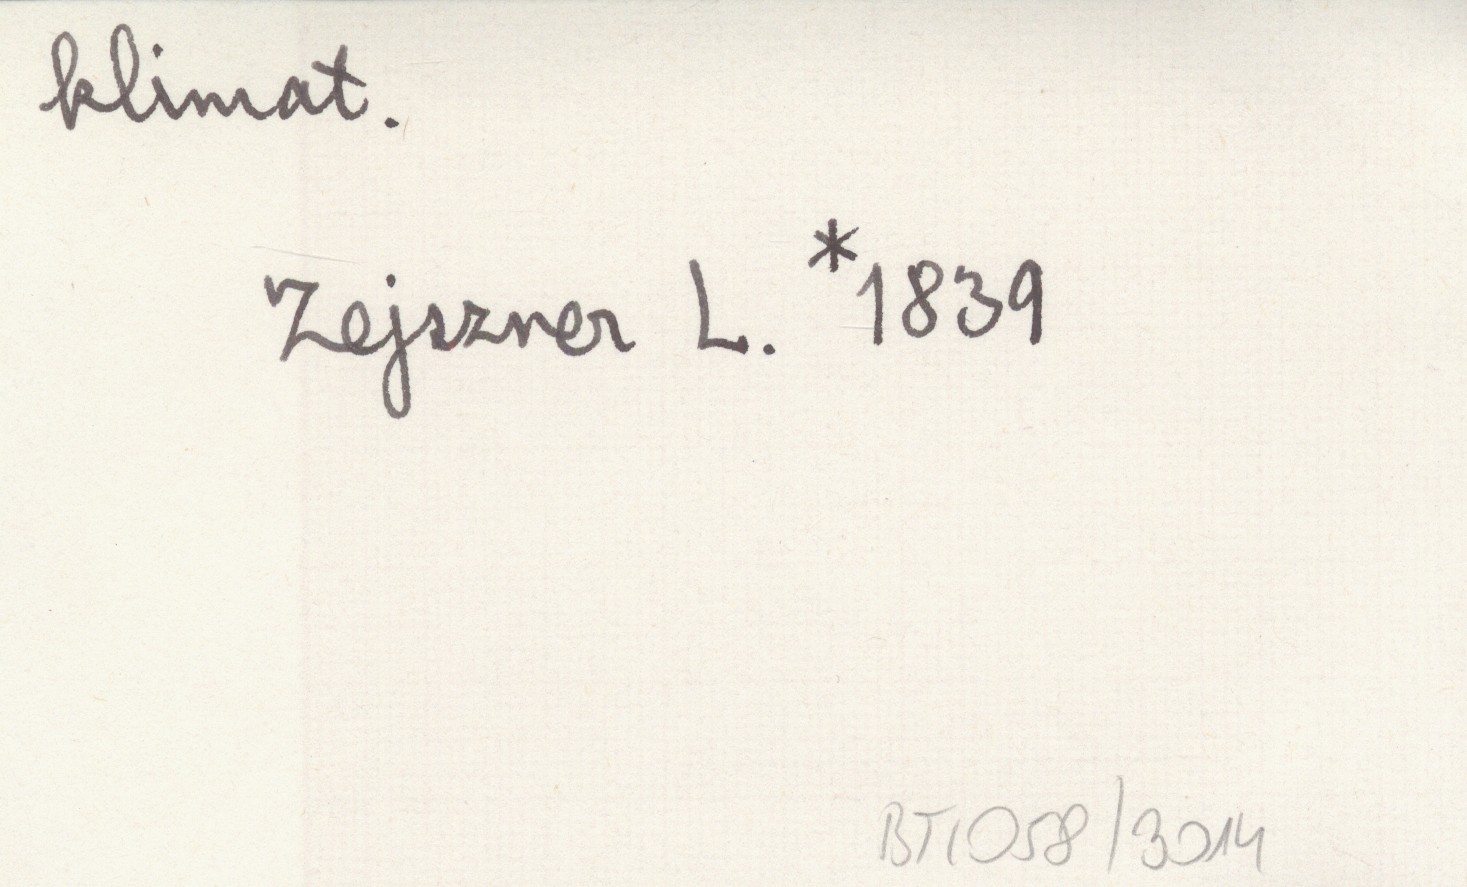 klimat.
Zejszner L. *1839
BT1058/3014